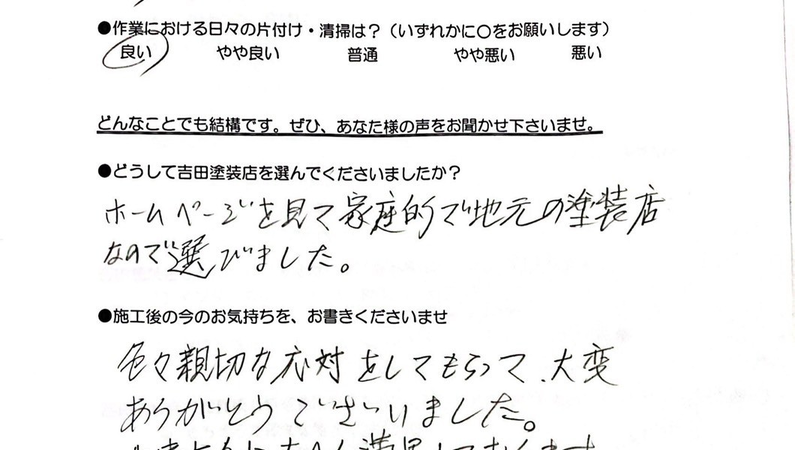 ●作業における日々の片付け・清掃は？（いずれかに〇をお願いします）
良い やや良い 普通 やや悪い 悪い
どんなことでも結構です。ぜひ、あなた様の声をお聞かせ下さいませ。
●どうして吉田塗装店を選んでくださいましたか？
ホームページを見て家庭的で地元の塗装店
なので選びました。
●施工後の今のお気持ちを、お書きくださいませ
色々親切な応対をしてもらって、大変
ありがとうございました。
満足しております